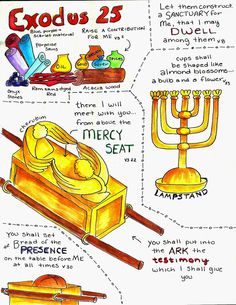 Exodus 25
Blue, purple +
scarlet material
RAISE A CONTRIBUTION
FOR ME v3
Porpoise
Skins
Oil
Onyx
Stones
Ram skins dyed
Red
Acacia Wood
Let them construct
a SANCTUARY for
Me, that I may
DWELL
among them v8
cups shall
be shaped like
almond blossoms...
a bulb and a flower
LAMPSTAND
there I will
meet with you...
from above the
MERCY
SEAT
v22
cherubim
you shall set
the Bread of the
PRESENCE
on the table before ME
at all times v30
you shall put into
the ARK the
testimony
which I shall give
you